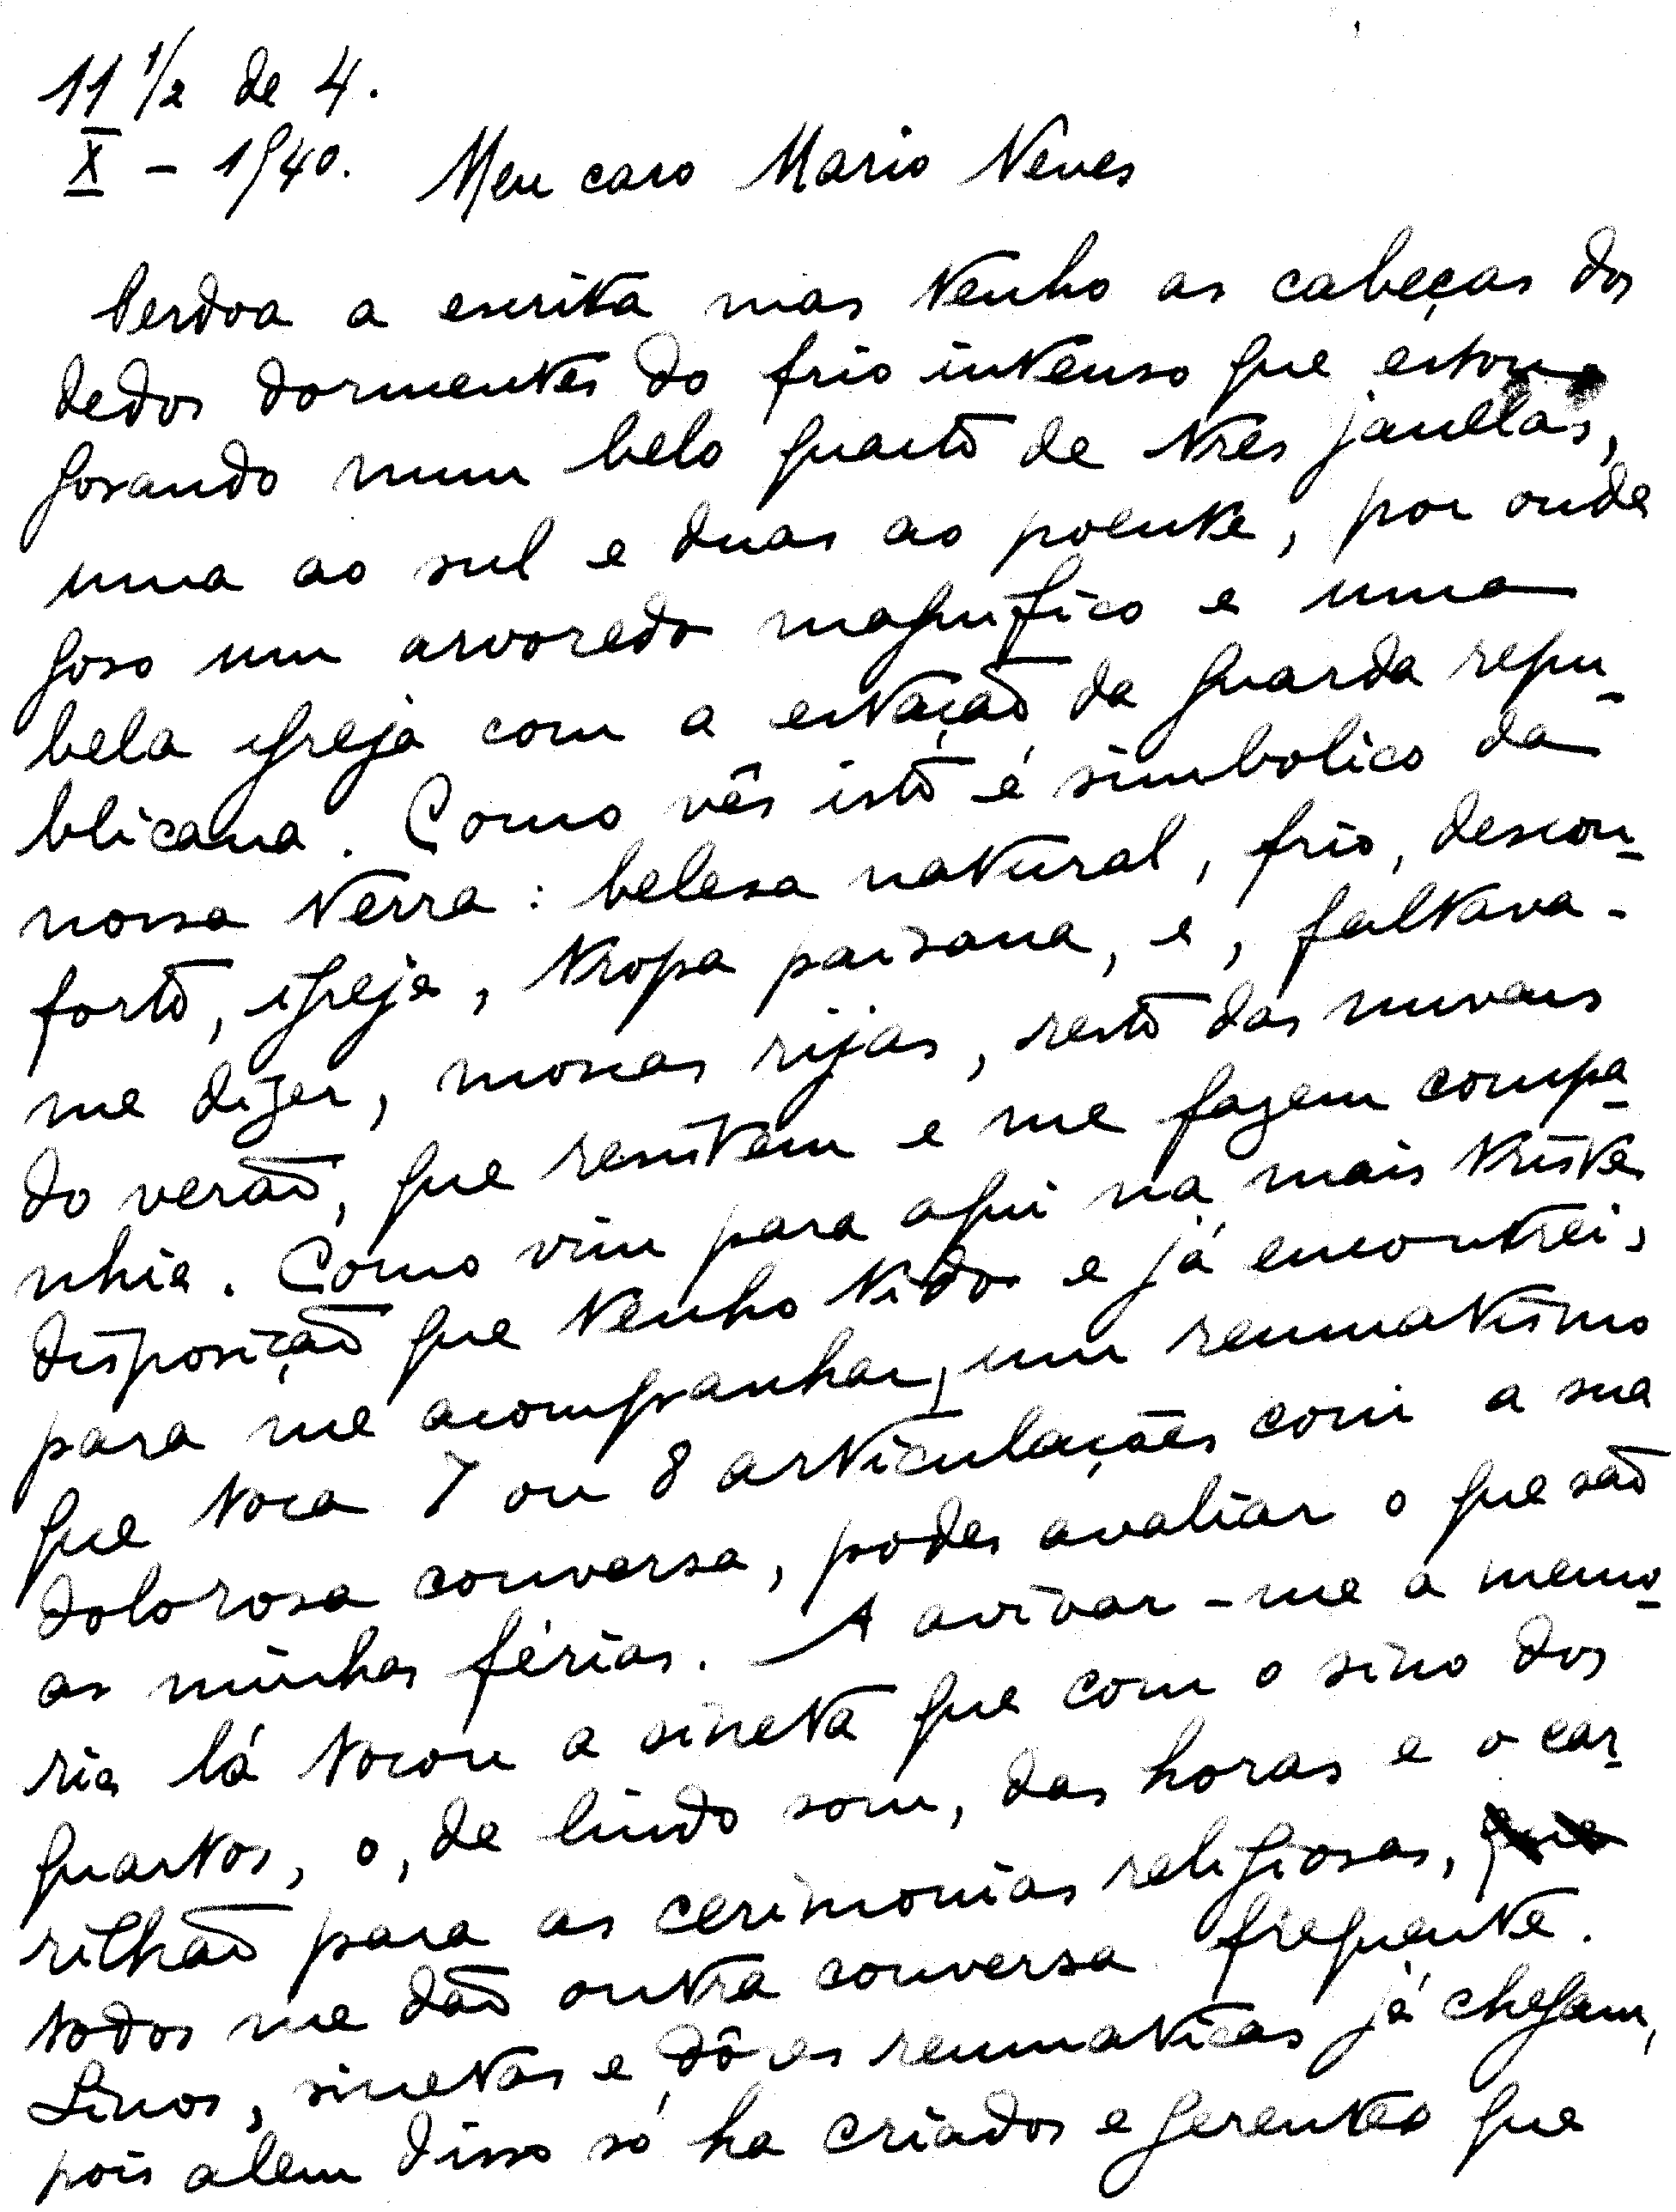 11 1/2 de 4.
X - 1940. Meu caro Mario Neves
Perdoa a escrita mas tenho as cabeças dos
dedos dormentes do frio intenso que estou
gosando num belo quarto de tres janellas,
uma ao sul e duas ao poente, por onde
goso um arvoredo magnifico e uma
bela igreja com a estação da guarda repu-
blicana. Como vês isto é simbolico da
nossa terra: belesa natural, frio, descon-
forto, igreja, tropa paisana, e, faltava-
me dizer, moscas rijas, resto das nuvens
do verão, que resistem e me fazem compa-
nhia. Como vim para aqui na mais triste
disposição que tenho tido e já encontrei,
para me acompanhar, um reumatismo
que toca 7 ou 8 articulações com a sua
dolorosa conversa, podes avaliar o que são
as minhas férias. A avivar-me a memo-
ria lá tocou a sineta que com o sino dos
quartos, o, de lindo som, das horas e o car-
rilhão para as cerimonias religiosas, que
todos me dão outra conversa frequente.
Sinos, sinetas e dôres reumaticas já chegam,
pois alem disso só ha criados e gerentes que